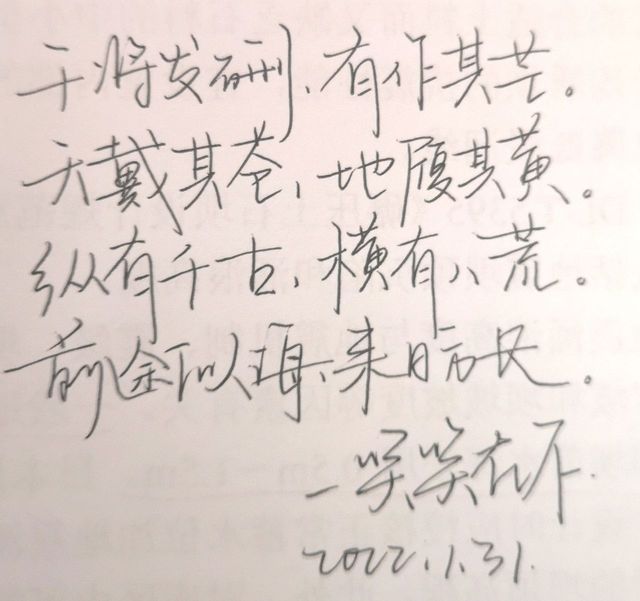 干将发硎，有作其芒。
天戴其苍，地履其黄。
纵有千古，横有八荒。
前途似海，来日方长。
一笑笑在下.
2022.1.31.